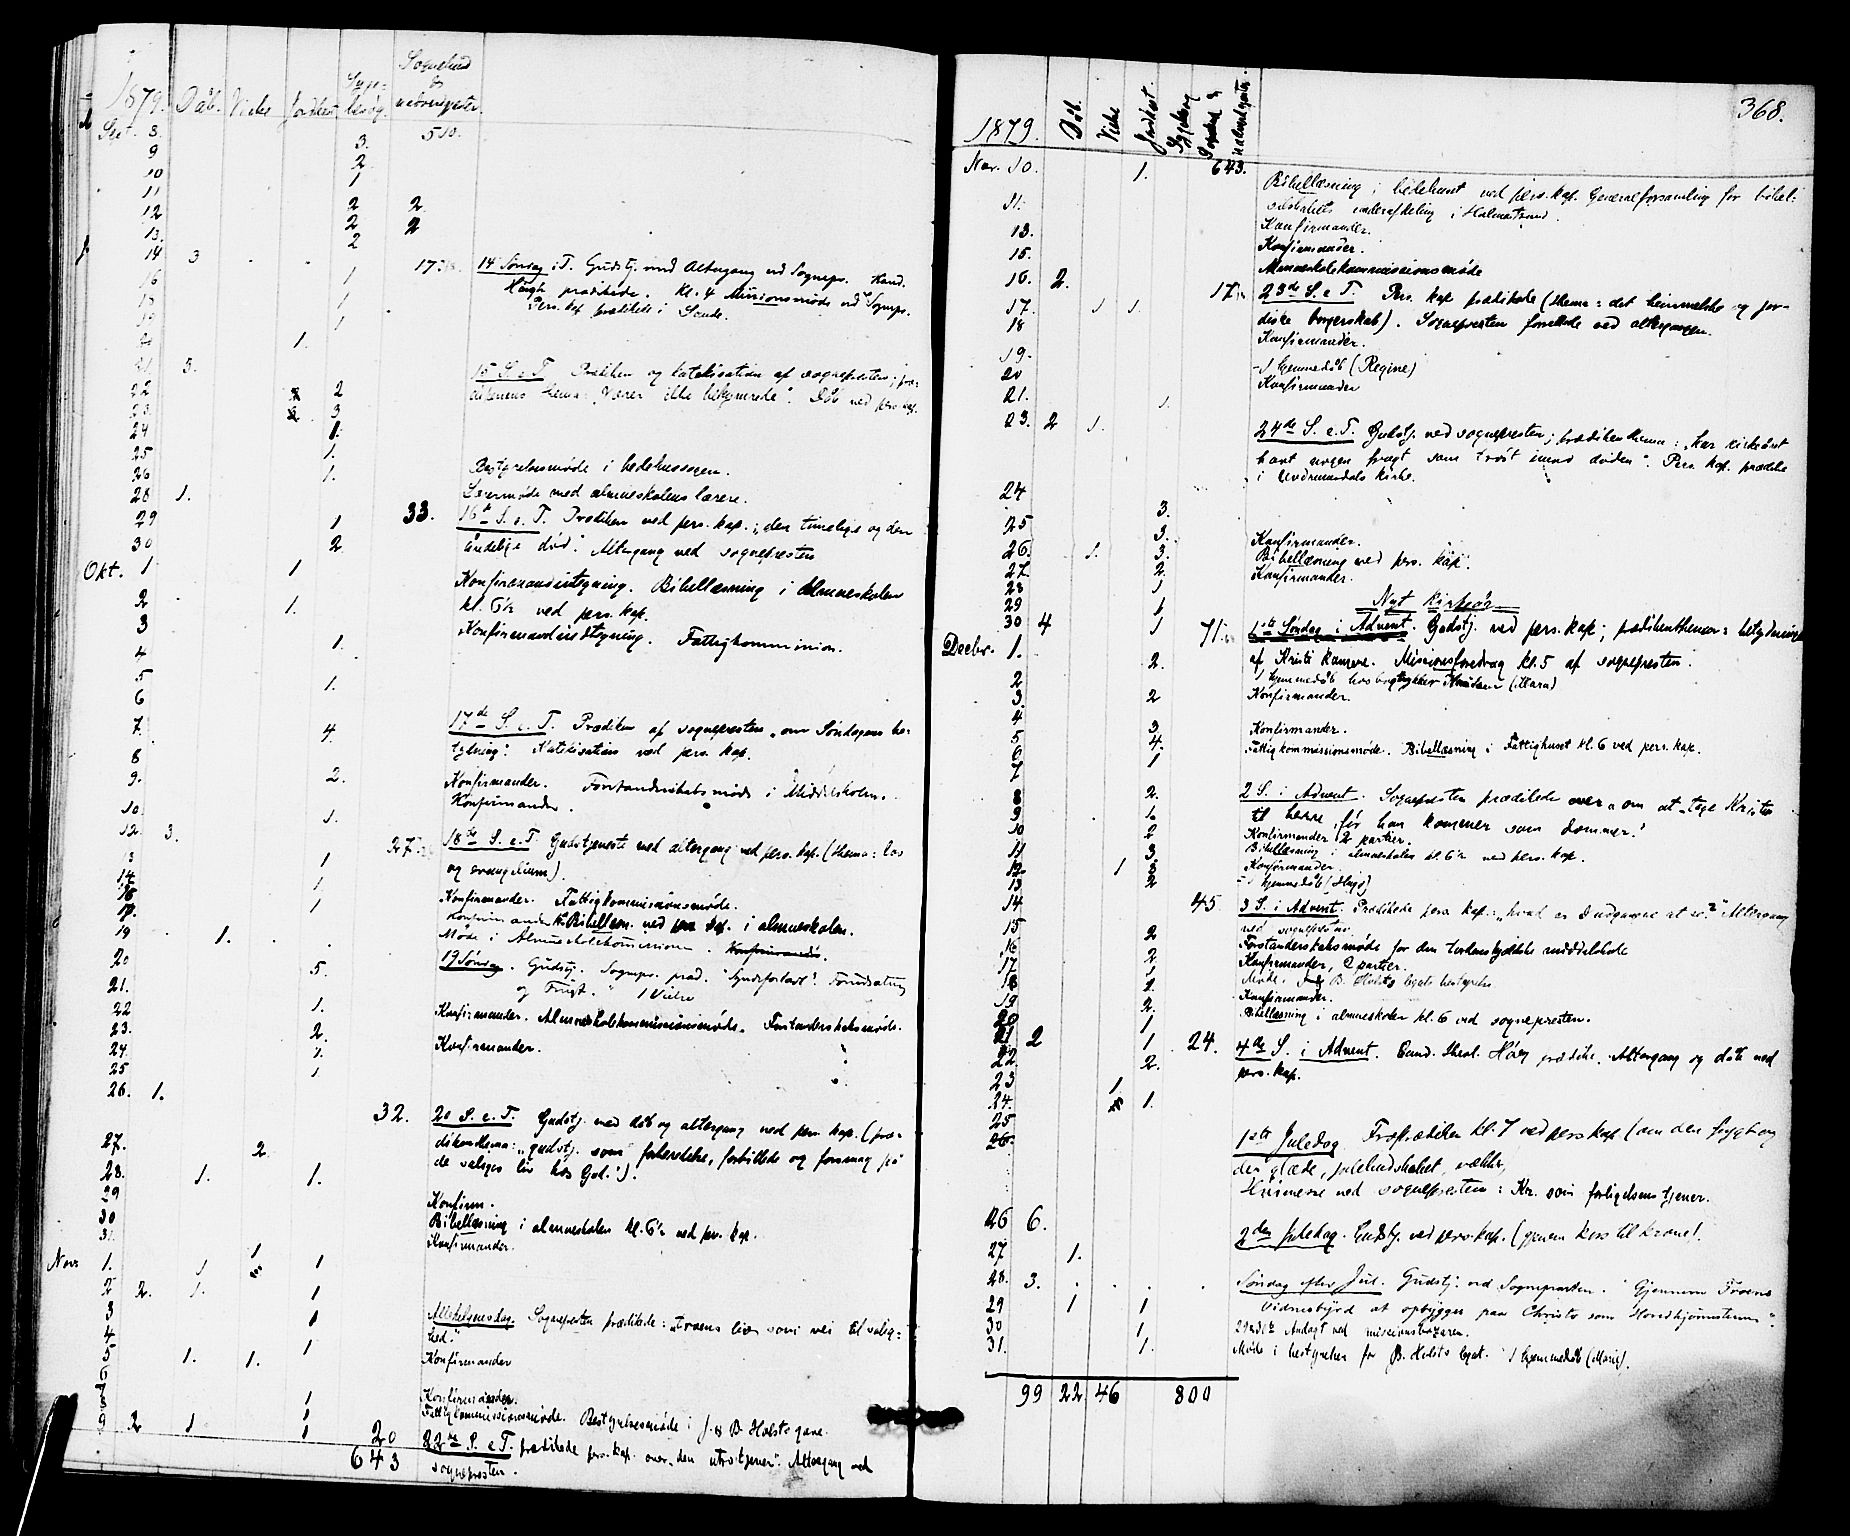 1879. Dåb. Vielse Jordfest Syge-
besøg. Sognebud
&
nadvergjester.
Sept. 8. 3. 510.
9 2
10 1
11 2 2
12 2 2
13. 2
14 3 17 14 Søndag e. T. Gudstj. med Altergang ved Sognepr. Kand.
Hough prædikede. Kl. 4 Missionsmøde ved Sognepr.
Pers. kap prædikede i Sande.
16 1
18 1
19 1
20 1.
21 3. 15 S. e. T. Prædiken og katekisation af sognepresten; præ-
dikenens thema: "Værer ikke bekymrede". Dåb ved pers. kap.
22 2
23. 3
24 1.
25 1.
26 1. Bestyrelsesmøde i bedehussagen.
28 1. Lærermøde med almueskolens lærere.
33. 16de S. e. T. Prædiken ved pers. kap.; den timelige og den
29 1 åndelige død. Altergang ved sognepresten
30 2
Okt. 1 1 Konfirmandindtegning. Bibellæsning i Almueskolen
2 1. kl. 6½ ved pers. kap.
3 Konfirmandindtegning. Fattigkommission.
4 1.
5
6 1.
7. 4 17de S. e. T. Prædiken af sognepresten "om Søndagens be-
tydning". Katekisation ved pers. kap.
8
9. 2. Konfirmander. Forstanderskabsmøde i Middelskolen.
Konfirmander.
10 1.
12. 3. 27. 18de S. e. T. Gudstjeneste med altergang ved pers. kap. (thema: lov
13 1 og evangelium).
14 1.
16 1 Konfirmander. Fattigkommissionsmøde.
17. Konfirmander. Bibellæsn. ved pers. kap. i almueskolen.
19 1. Møde i Almueskolekommission. Konfirmander.
20 5. 19 Søndag. Gudstj. Sognepr. præd. "Syndsforladt. Forudsætning
21. og Frugt." 1 Vielse
22 1. Konfirmander. Almueskolekommissionsmøde. Forstanderskabsmøde.
23. 2.
24. 1. Konfirmander.
25 1
26. 1.
32. 20 S. e. T. Gudstj. med dåb og altergang ved pers. kap. (præ-
27. 2 dikenthema: "gudstj. som forberedelse, forbillede og forsmag på
28. 1. 1. de saliges liv hos Gud.").
29
30 Konfirm.
31. Bibellæsning i almueskolen kl. 6½ ved pers. kap.
Konfirmander.
Nov. 1. 1 1 1
2 2. 1. 1
3 1 Allehelgensdag. Sognepresten prædikede: "troens liv som vei til salig-
4 1 hed."
5 1. 1. Konfirmander
6
7 1 Konfirmander.
8 1 Fattigkommissionsmøde. Bestyrelsesmøde i J. & B. Holsts gave.
9 2 1 1 20 22de S. e. T. prædikede pers. kap. over "den utro tjener". Altergang ved
643 sognepresten.
368.
1879. Dåb. Vielse Jordfest Sygebesøg Sognebud & nadvergjester.
Nov. 10. 1. 643. Bibellæsning i bedehuset ved pers. kap. Generalforsamling for bibel-
11. selskabets underafdeling i Holmestrand.
Konfirmander.
13. Konfirmander.
15. Almueskolekommissionsmøde
16. 2. 17 23de S. e. T. Pers. kap prædikede (thema: det himmelske og jor-
17. 1 1. diske borgerskab). Sognepresten forrettede ved altergangen.
18 Konfirmander.
19. 1 hjemmedåb (Regine)
20 Konfirmander
21. 1.
23. 2 1. 24de S. e. T. Gudstj. ved sognepresten; prædikenthema: "har kirkeåret
havt nogen frugt som trøst imod døden". Pers. kap. prædik.
24 i kirke.
25 3.
3. Konfirmander.
26. 1. 3. Bibellæsning ved pers. kap.
27. 2. Konfirmander.
28 1
29 1 Nyt kirkeår
30 4 1 71. 1ste Søndag i Advent. Gudstj. ved pers. kap; prædikenthema: betydningen
Decbr. 1. 2. af Kristi komme. Missionsforedrag kl. 5 af sognepresten.
2 1 hjemmedåb hos bogtrykker Knudsen (Mara)
3. 2 Konfirmander.
4 3 Konfirmander.
5 4. Fattigkommissionsmøde. Bibellæsning i Fattighuset kl. 6 ved pers. kap.
6 1
7
8 2. 2 S. i Advent. Sognepresten prædikede over "om at tage Kristus
9 1. til herre før han kommer som dommer."
10 2 Konfirmander 2 partier.
11 3. Bibellæsning i almueskolen kl. 6½ ved pers. kap.
12 1 3. Konfirmander
13 2 1 hjemmedåb (Hugo)
14 45. 3 S. i Advent. Prædikede pers. kap.: "hvad er I udgangne at se?" Altergang
15 2 ved sognepresten.
16 2 Forstanderskabsmøde for den lærde middelskole
17 1 Konfirmander, 2 partier.
18 2. Møde i J. & B. Holsts legats bestyrelse
19 2. Konfirmander.
20 1 Bibellæsning i almueskolen kl. 6 ved sognepresten.
21 2 1 24. 4de S. i Advent. Cand. theol. Høeg prædike. Altergang og dåb ved
22. 2. pers. kap.
23 1
24. 1.
25 1ste Juledag Froprædiken kl. 7 ved pers. kap (om den frygt og
26. den glæde, julebudskabet vækker.
Høimesse ved sognepresten: Kr. som forligelsens tjener.
26 6. 2den juledag. Gudstj. ved pers. kap. (gjenem kors til krone).
27 1.
28. 3. Søndag efter Jul. Gudstj. ved Sognepresten. "Gjennem Troens
29 1 1 Vidnesbyrd at opbygges paa Christo som Hovedhjørnestenen".
30 1 Andagt ved missionsbazaren.
31. 1. Møde i bestyrelsen for B. Holsts legat. 1 hjemmedåb (Marie).
99 22 46 800